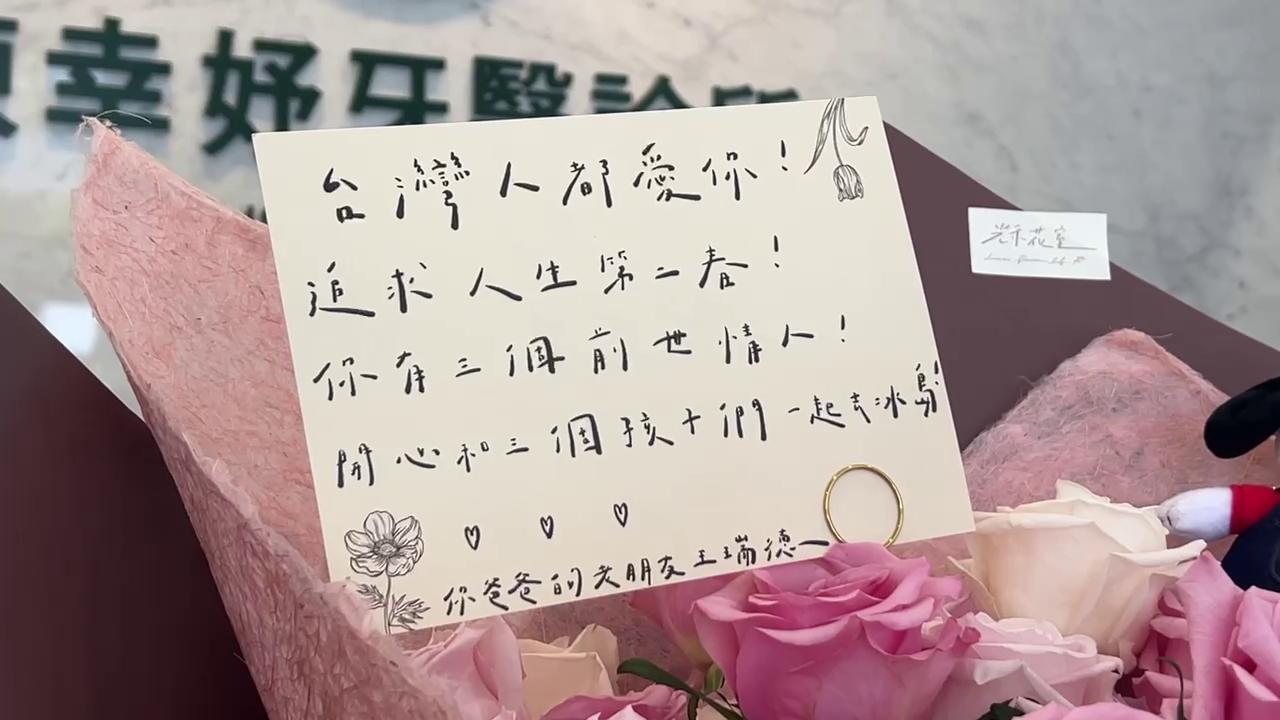 幸妤牙醫診所
台灣人都愛你!
追求人生第二春!
你有三個前世情人!
開心和三個孩子們一起去冰島!
♡ ♡ ♡
你爸爸的老朋友王瑞德
花室